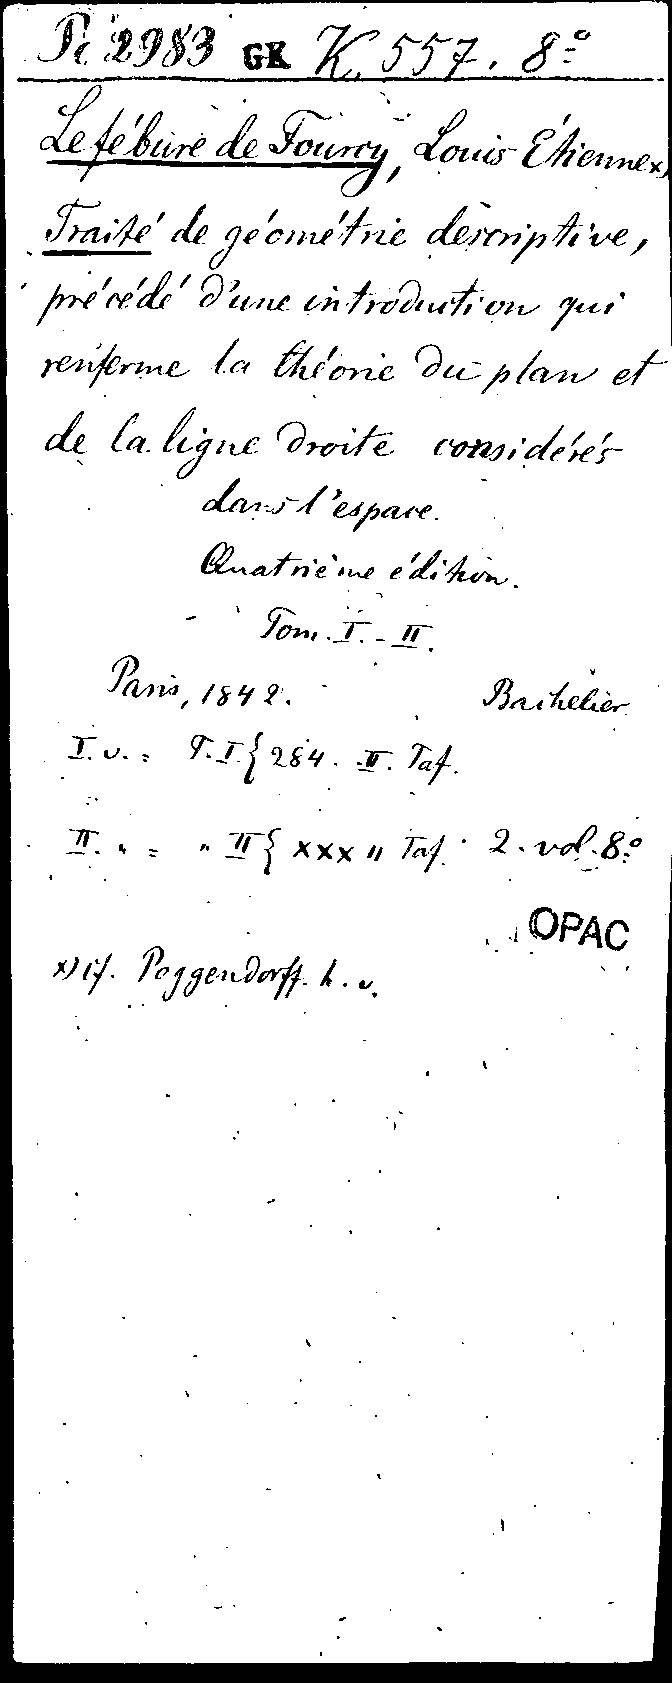 Pi 2983 GK K. 557. 8º
Lefébure de Fourcy, Louis Étienne x)
Traité de géométrie descriptive,
précédé d'une introduction qui
renferme la théorie du plan et
de la ligne droite considérés
dans l'espace.
Quatrième édition.
Tom. I. - II.
Paris, 1842. Bachelier
I. v. = T. I { 284. II. Taf.
II. " = " II { XXX II Taf. 2. vol. 8º
OPAC
x) cf. Poggendorff. h. v.